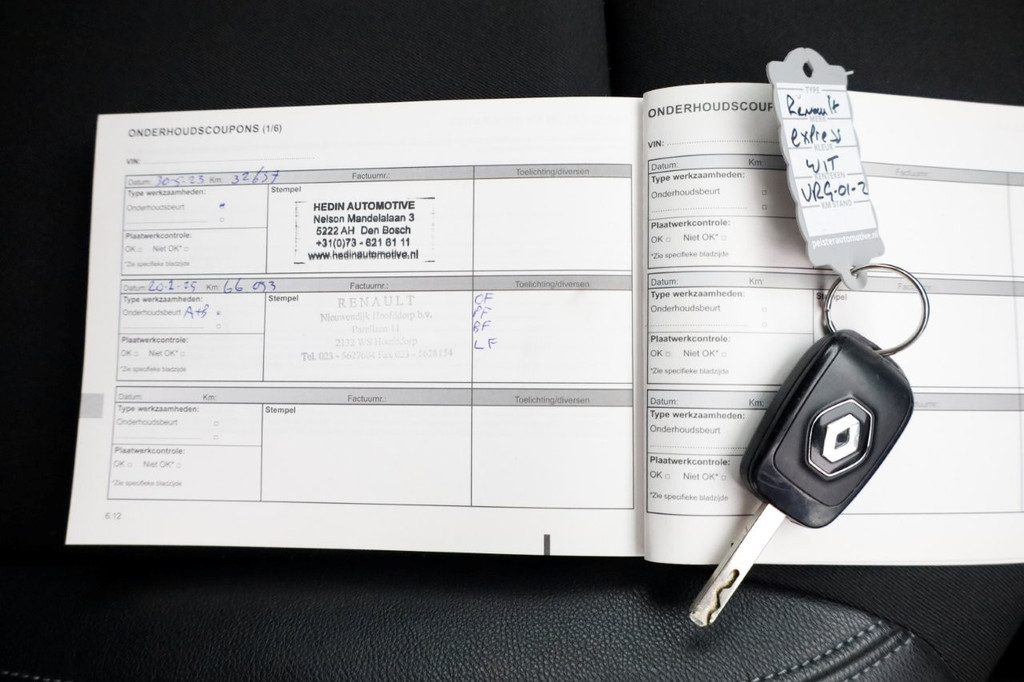 ONDERHOUDSCOUPONS (1/6)
VIN:
Datum: 30-5-23 Km: 32657 Factuurnr.: Toelichting/diversen
Type werkzaamheden: Stempel
Onderhoudsbeurt
HEDIN AUTOMOTIVE
Nelson Mandelalaan 3
5222 AH Den Bosch
+31(0)73 - 621 61 11
www.hedinautomotive.nl
Plaatwerkcontrole:
OK Niet OK*
*Zie specifieke bladzijde
Datum: 20-1-25 Km: 66 093 Factuurnr.: Toelichting/diversen
Type werkzaamheden: Stempel
Onderhoudsbeurt A+B
RENAULT
Nieuwendijk Hoofddorp b.v.
2132 WS Hoofddorp
Tel. 023 - 5627604 Fax 023 - 5628154
OF
PF
BF
LF
Plaatwerkcontrole:
OK Niet OK*
*Zie specifieke bladzijde
Datum: Km: Factuurnr.: Toelichting/diversen
Type werkzaamheden: Stempel
Onderhoudsbeurt
Plaatwerkcontrole:
OK Niet OK*
*Zie specifieke bladzijde
6.12
ONDERHOUDSCOUP
VIN:
Datum: Km
Type werkzaamheden:
Onderhoudsbeurt
Plaatwerkcontrole:
OK Niet OK*
*Zie specifieke bladzijde
Datum: Km:
Type werkzaamheden: Stempel
Onderhoudsbeurt
Plaatwerkcontrole:
OK Niet OK*
*Zie specifieke bladzijde
Datum: Km:
Type werkzaamheden:
Onderhoudsbeurt
Plaatwerkcontrole:
OK Niet OK*
*Zie specifieke bladzijde
TYPE
Renault
MERK
express
KLEUR
WIT
KENTEKEN
VRG-01-Z
KM STAND
peisterautomotive.nl